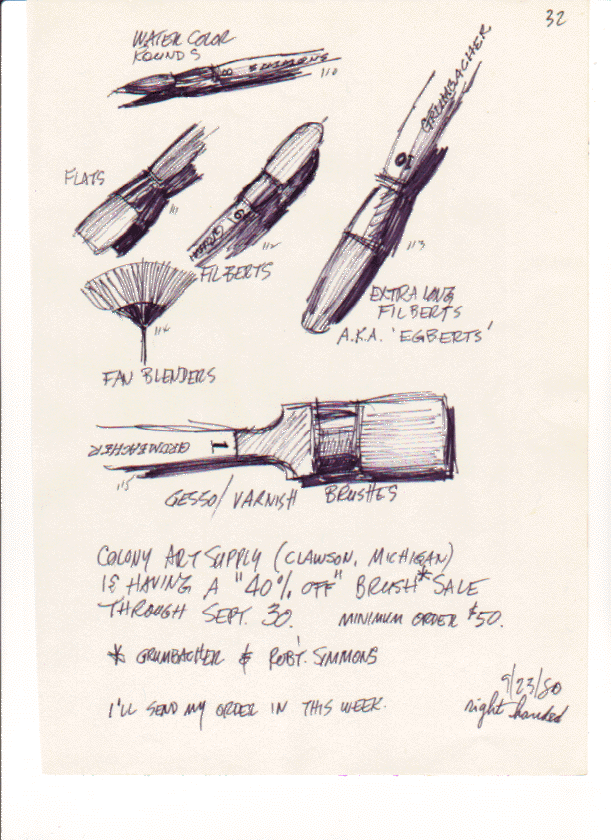 32
WATER COLOR
ROUNDS
8 SIMMONS
110
GRUMBACHER
10
FLATS
111
6
112
FILBERTS
113
EXTRA LONG
FILBERTS
A.K.A. 'EGBERTS'
114
FAN BLENDERS
GRUMBACHER 1
115
GESSO/VARNISH BRUSHES
COLONY ART SUPPLY (CLAWSON, MICHIGAN)
IS HAVING A "40% OFF" BRUSH* SALE
THROUGH SEPT. 30. MINIMUM ORDER $50.
* GRUMBACHER & ROBT. SIMMONS
9/23/80
I'LL SEND MY ORDER IN THIS WEEK.
right handed